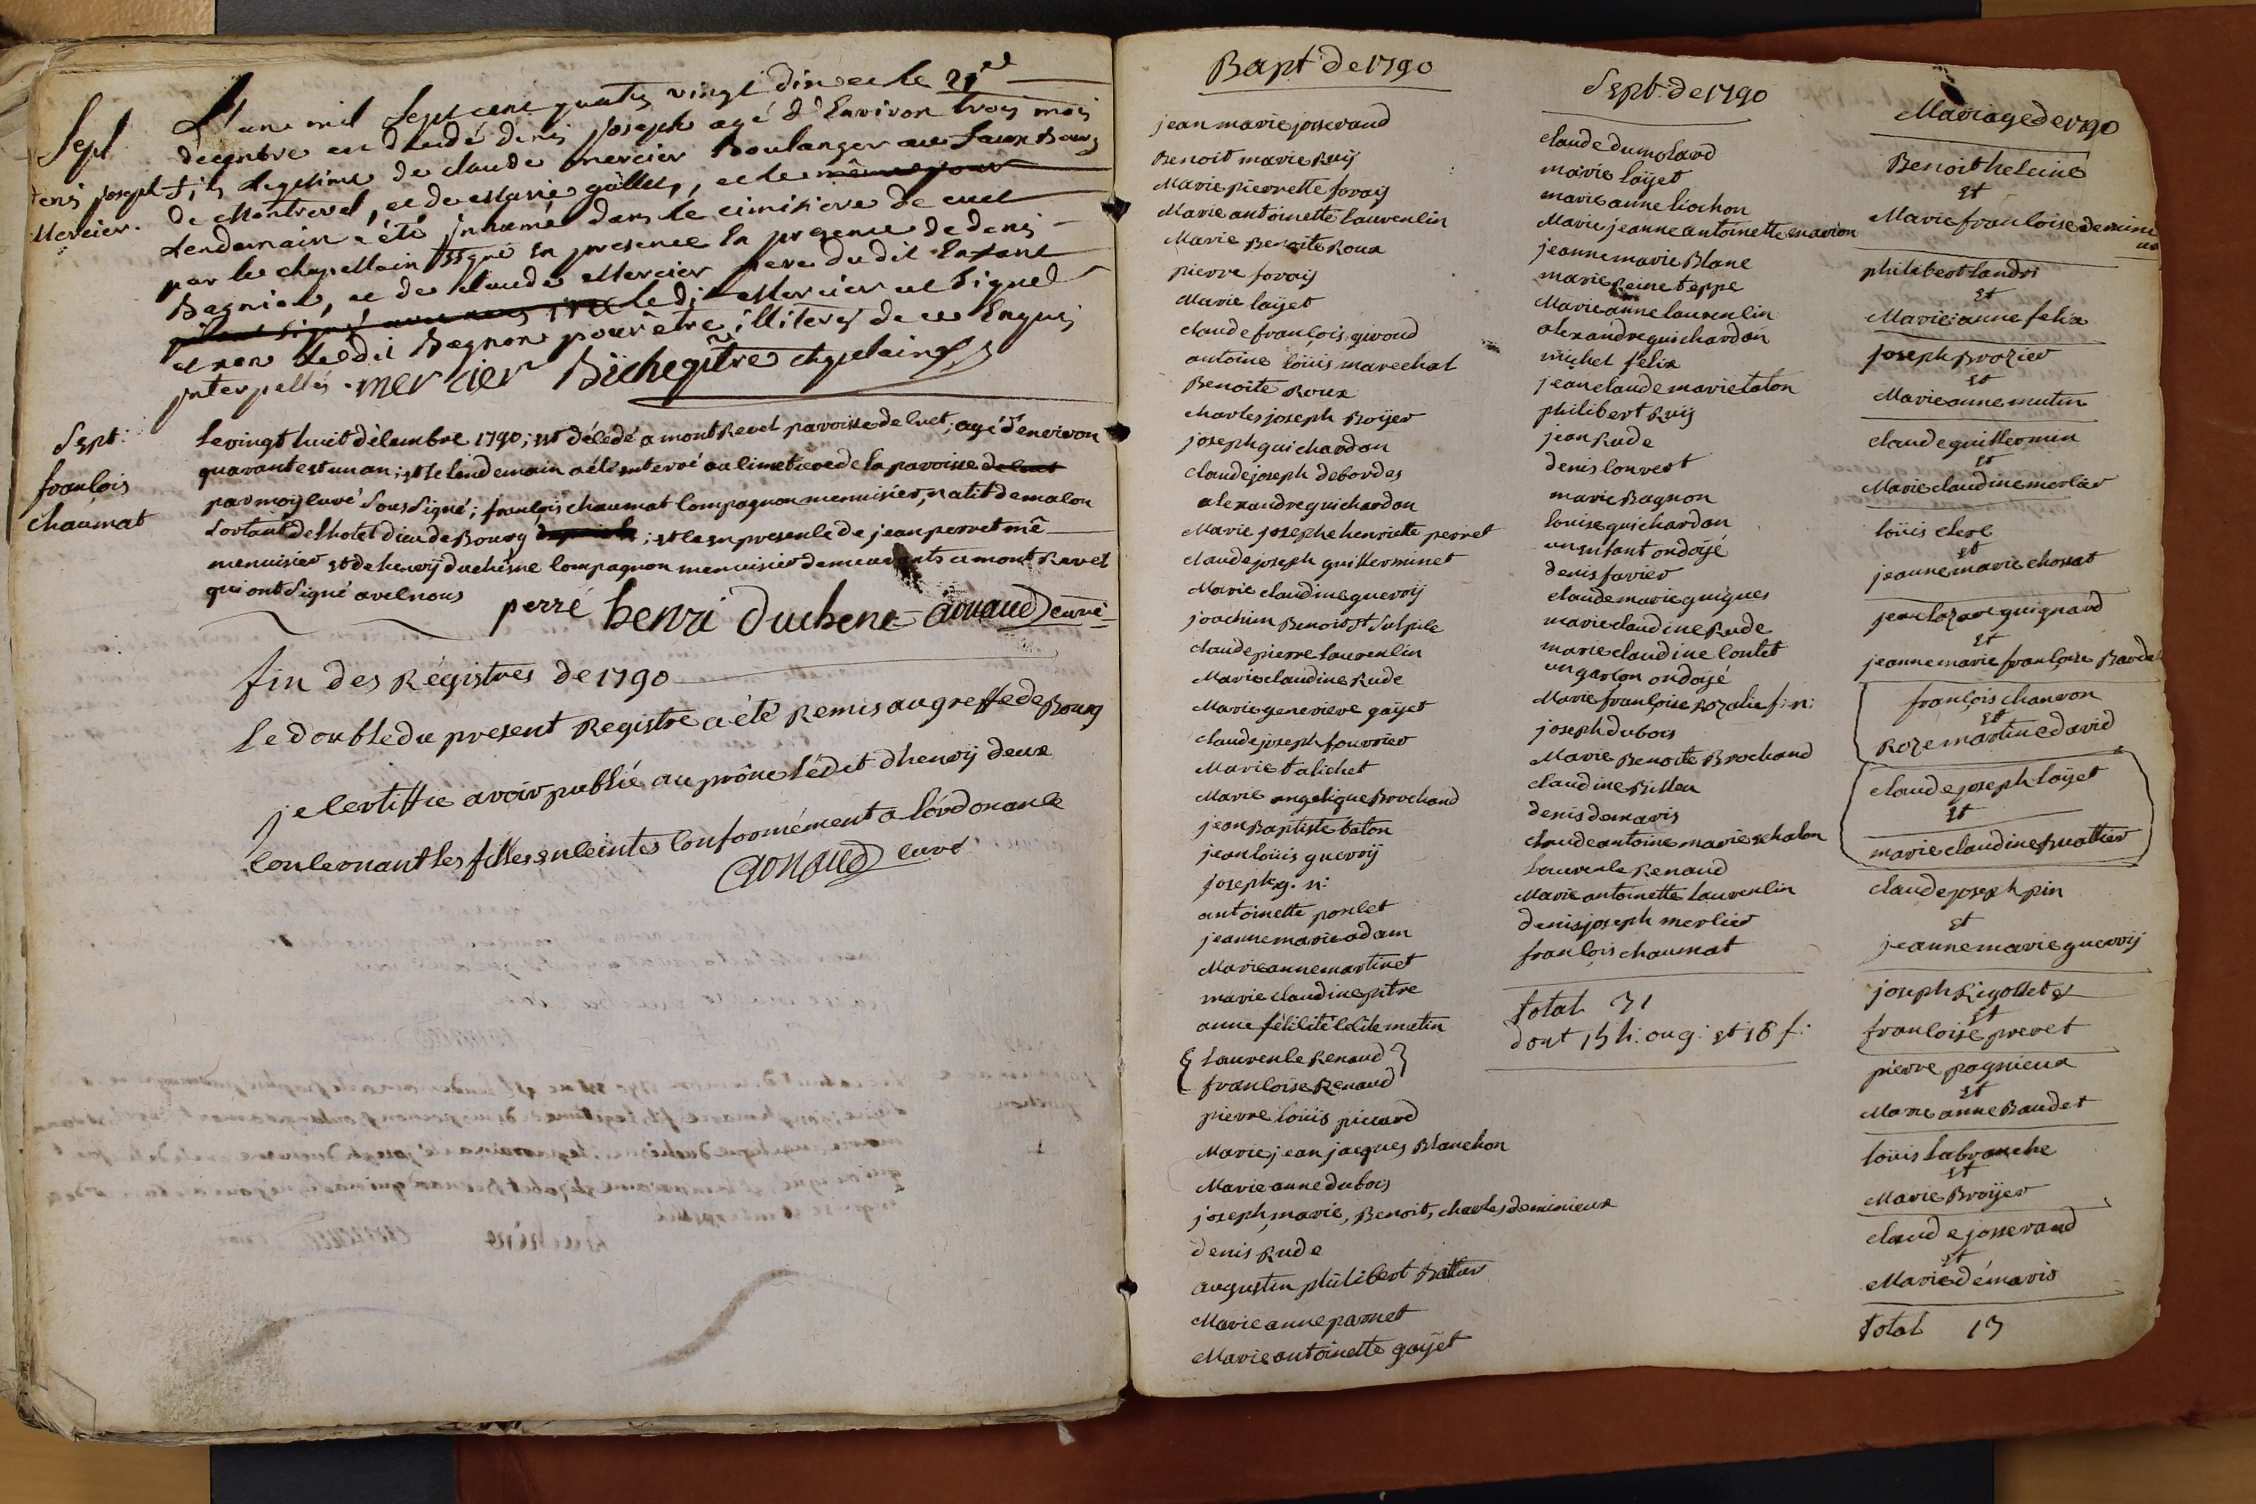 Sept
denis joseph
Mercier.
L'an mil sept cent quatre vingt dix et le 21
decembre est decedé denis joseph agé d'Environ trois mois
fils legitime de claude mercier Boulanger au faux Bourg
de Montrevel, et de Marie gallet, et le même jour
Lendemain a été inhumé dans le cimitiere de cuet
par le chapellain sigué En presence En presence de denis
Bagnion, et de claude Mercier pere dudit Enfant
le dit Mercier a signé
et non ledit Bagnon pour être illiteré de ce Enquis
interpellés. mercier Bichegitre chapelain
Sept:
francois
chaumat
Le vingt huit décembre 1790; est décédé a montRevel paroisse de Cuet; agé d'environ
quarante et un an; et le lendemain a été enterré au cimetiere de la paroisse de Cuet
par moy curé soussigné; francois chaumat compagnon menuisier, natif de macon
sortant de l'hotel dieu de Bourg; et ce en presence de jean perret mê
menuisier et de henrÿ duchésne compagnon menuisier demeurants a montRevel
qui ont signé avec nous
perré henri duchene arnaud curé
fin des Régistres de 1790
Le double du present Registre a été Remis au greffe de Bourg
je certiffie avoir publié au prône l'édit d'henrÿ deux
concernant les filles enceintes conformément a l'ordonance
arnaud curé
Bapt de 1790
jean marie josserand
Benoit marie Ruÿ
Marie pierrette foraÿ
Marie antoinette laurencin
Marie Benoite Roux
pierre foraÿ
Marie laÿet
claude françois giroud
antoine loüis marechal
Benoite Roux
charles joseph Roÿer
joseph guichardon
claude joseph debordes
alexandre guichardon
Marie josephe henriette perret
claude joseph guillerminet
Marie claudine guerrÿ
joachim Benoist Sulpice
claude pierre laurencin
Marie claudine Rude
Marie genevieve gaÿet
claude joseph fourrier
Marie talichet
Marie angelique Brochand
jean Baptiste taton
jean loüis guerrÿ
joseph g. n:
antoinette poncet
jeanne marie adam
Marie anne martinet
marie claudine pitre
anne félicité Cécile mutin
{ Laurence Renaud }
{ francoise Renaud
pierre loüis picard
Marie jean jacques Blanchon
Marie anne dubois
joseph, marie, Benoit, charles deminieux
denis Rude
augustin philibert
Marie anne parnet
Marie antoinette gaÿet
Sept: de 1790
claude dumolard
marie laÿet
marie anne liochon
Marie jeanne antoinette
jeanne marie Blanc
marie Reine teppe
Marie anne laurencin
alexandre guichardon
michel felix
jean claude marie taton
philibert Ruÿ
jean Rude
denis convert
marie Bagnon
louise guichardon
un enfant ondoÿé
denis favier
claude marie guigues
marie claudine Rude
marie claudine contet
un garcon ondoÿé
Marie françoise Rozalie f: n:
joseph dubois
Marie Benoite Brochand
claudine Billou
denis demaris
claude antoine marie chalon
Laurence Renaud
Marie antoinette laurencin
denis joseph mercier
francois chaumat
total 31
dont 15 h: ou g: et 16 f:
Mariage de 1790
Benoit heleine
et
Marie francoise
philibert landri
et
Marie anne felix
joseph Brozier
et
Marie anne mutin
claude guillermin
et
Marie claudine mercier
loüis clerc
et
jeanne marie chossat
jean lazare guignard
et
jeanne marie francoise Bardet
françois chanron
et
Roze martine david
claude joseph laÿet
et
marie claudine
claude joseph pin
et
jeanne marie guerrÿ
joseph Rigollet
et
francoise prevet
pierre pagnieux
et
Marie anne Baudet
loüis labranche
et
Marie Broÿer
claude josserand
et
Marie démaris
total 13